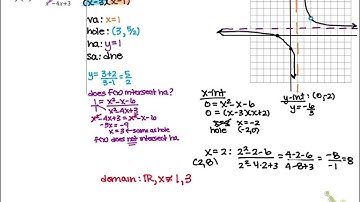 x²-4x+3 (x-3)(x-1)
va: x=1
hole: (3, 5/2)
ha: y=1
sa: dne
y = 3+2/3-1 = 5/2
does f(x) intersect ha?
1 = x²-x-6/x²-4x+3
x²-4x+3 = x²-x-6
-3x=-9
x=3 → same as hole
f(x) does not intersect ha
x-int
0 = x²-x-6
0 = (x-3)(x+2)
x=3 x=-2
hole (-2,0)
y-int: (0,-2)
y = -6/3
x=2: 2²-2-6/2²-4·2+3 = 4-2-6/4-8+3 = -8/-1 = 8
(2,8)
domain: ℝ, x≠1,3